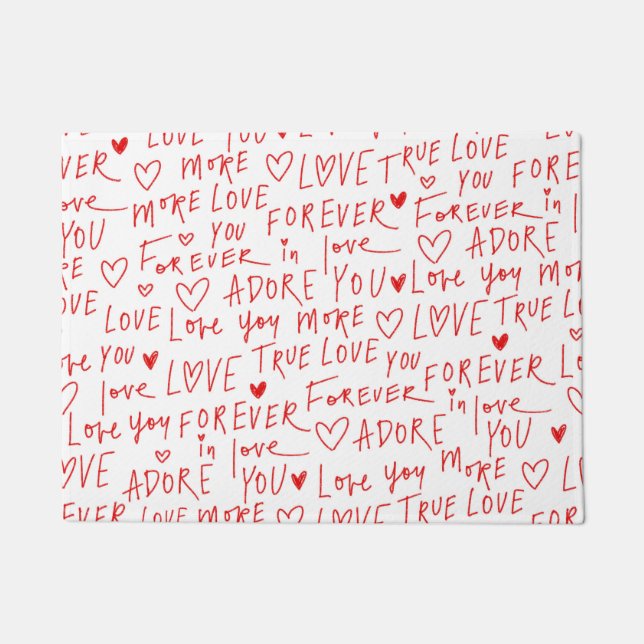 LOVE YOU LOVE
EVER MORE LOVE TRUE LOVE
YOU FOREVER
love MORE LOVE FOREVER FOREVER in
YOU YOU in love ADORE
RE FOREVER ADORE YOU Love you MORE
OVE LOVE Love you MORE LOVE TRUE LOVE
ove YOU LOVE TRUE LOVE YOU FOREVER LO
love FOREVER in love
Love you FOREVER in love ADORE YOU
OVE ADORE YOU Love you MORE LO
EVER LOVE MORE LOVE TRUE LOVE FOREV